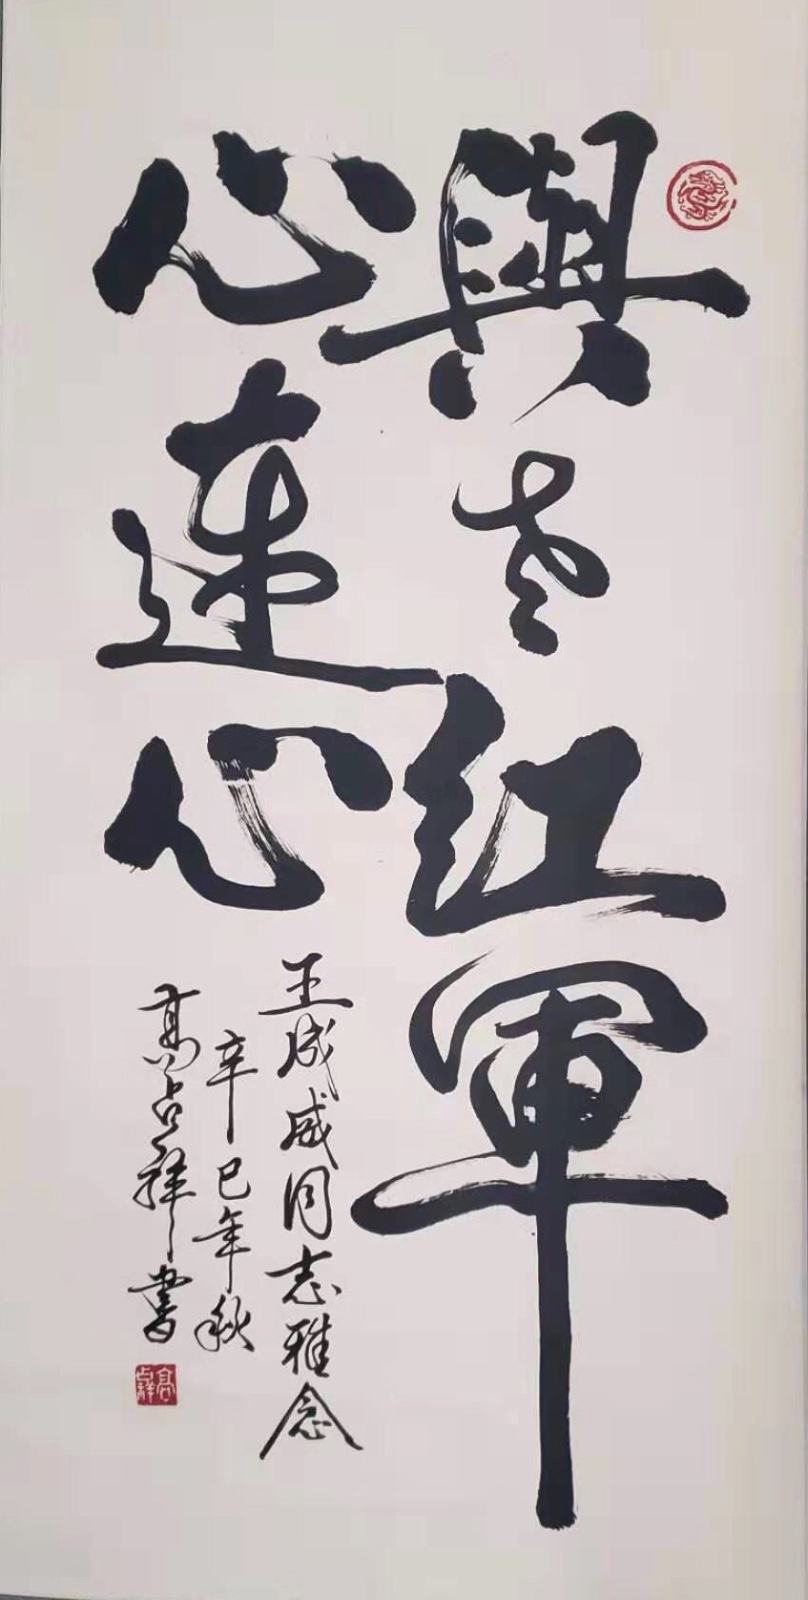 與老红軍
心連心
王成威同志雅念
辛巳年秋
高占祥書
高占祥